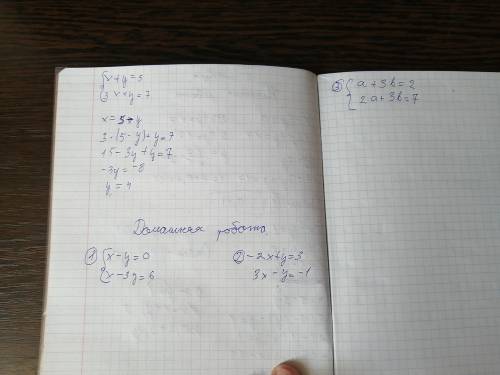 x+y=5
3x+y=7
x=5-y
3·(5-y)+y=7
15-3y+y=7
-3y=-8
y=4
Домашняя работа
① x-y=0
x-3y=6
② -2x+y=3
3x-y=-1
③ a+3b=2
2a+3b=7